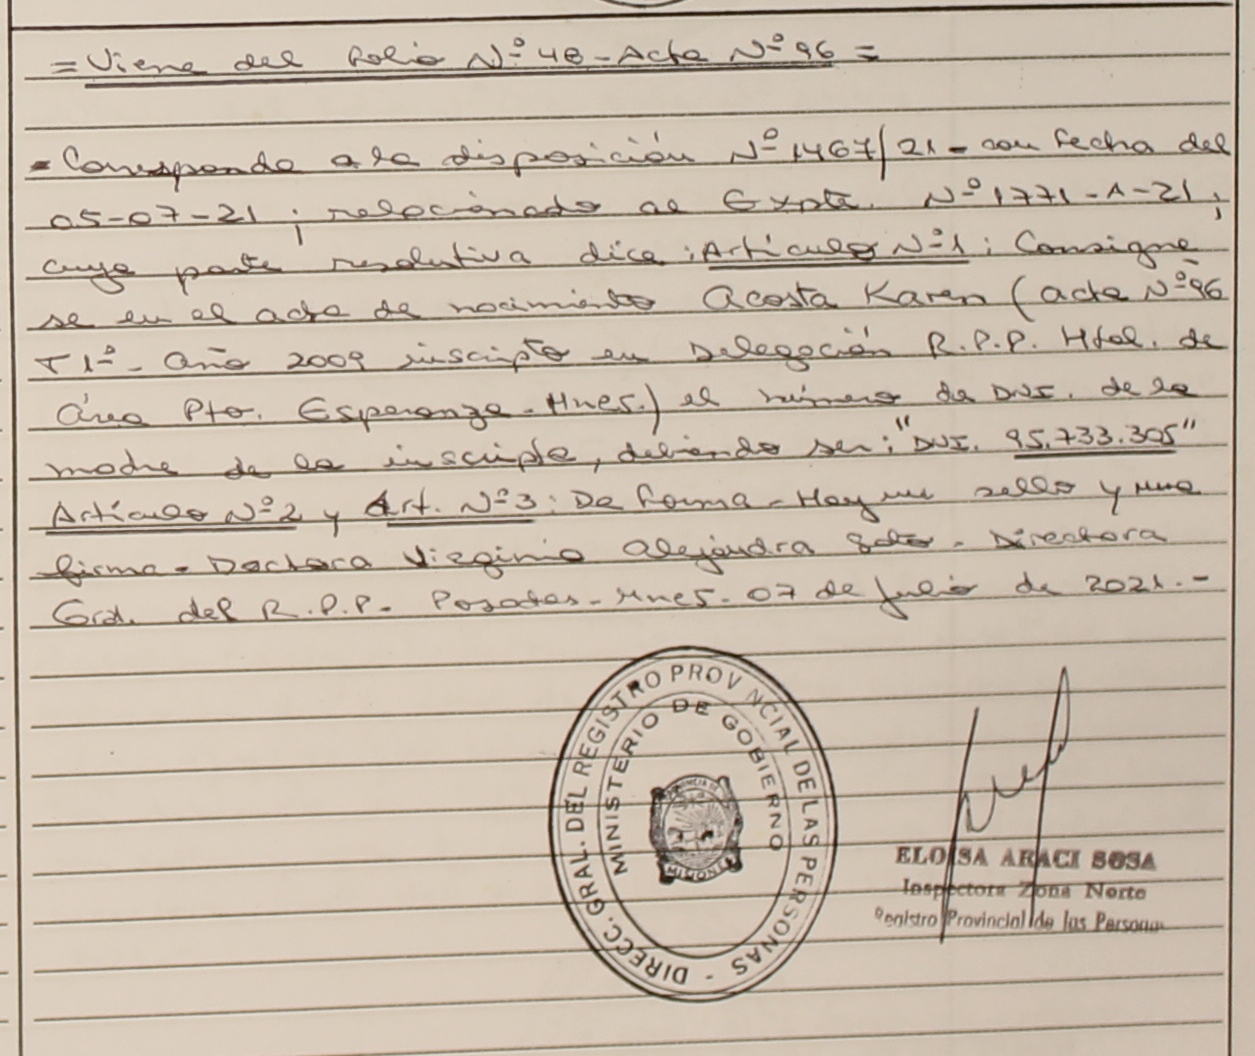 = Viene del Folio Nº 48 - Acta Nº 96 =
- Corresponde a la disposición Nº 1467/21 - con fecha del
05-07-21; relacionado al Expte. Nº 1771-A-21;
cuya parte resolutiva dice: Artículo Nº1: Consigne
se en el acta de nacimiento Acosta Karen (acta Nº96
T1º - Año 2009 inscripta en Delegación R.P.P. Htal. de
Área Pto. Esperanza - Mnes.) el número de DNI. de la
madre de la inscripta, debiendo ser: "DNI. 95.733.305"
Artículo Nº2 y Art. Nº3: De Forma - Hay un sello y una
firma - Doctora Virginia Alejandra - Directora
Gral. del R.P.P. - Posadas - Mnes - 07 de Julio de 2021.-
DIRECC. GRAL. DEL REGISTRO PROVINCIAL DE LAS PERSONAS -
MINISTERIO DE GOBIERNO
PROVINCIA DE
MISIONES
ELOISA ARACI SOSA
Inspectora Zona Norte
Registro Provincial de las Personas